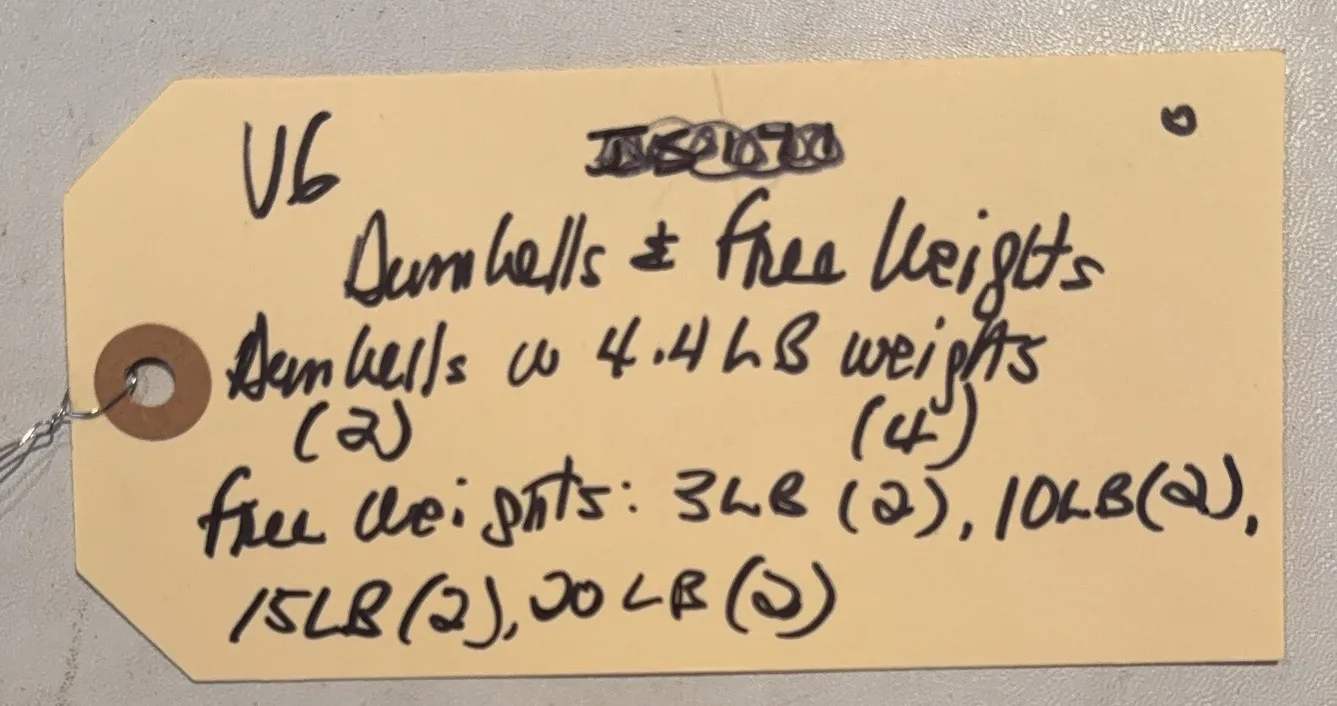 V6
Dumbells & Free Weights
Dumbells w 4.4 LB weights
(2) (4)
Free Weights: 3 LB (2), 10 LB (2),
15 LB (2), 20 LB (2)